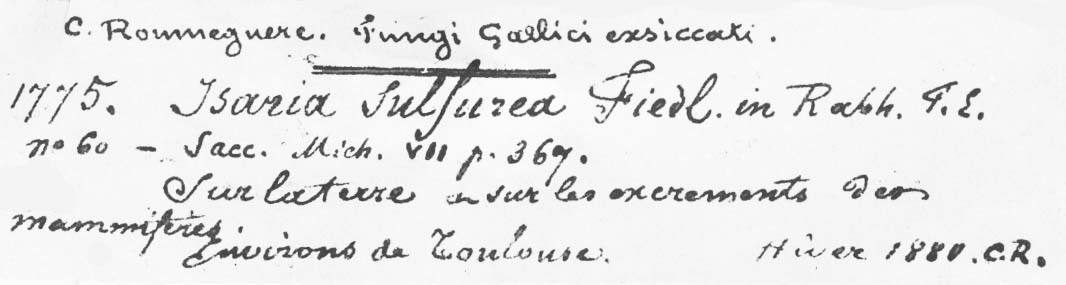 C. Roumeguere. Fungi Gallici exsiccati.
1775. Isaria Sulfurea Fiedl. in Rabh. F. E.
no 60 — Sacc. Mich. VII p. 367.
Sur la terre & sur les excrements des
mammifères
Environs de Toulouse. Hiver 1880. C.R.